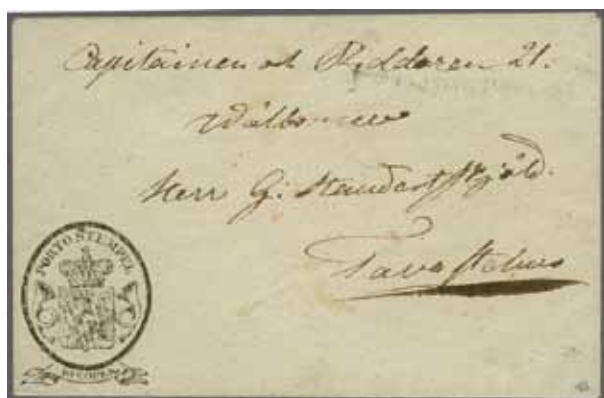 Capitainen och Riddaren
Välborne
Herr G: Standertskjöld.
Tavastehus
PORTO STEMPEL
10 KOPEK